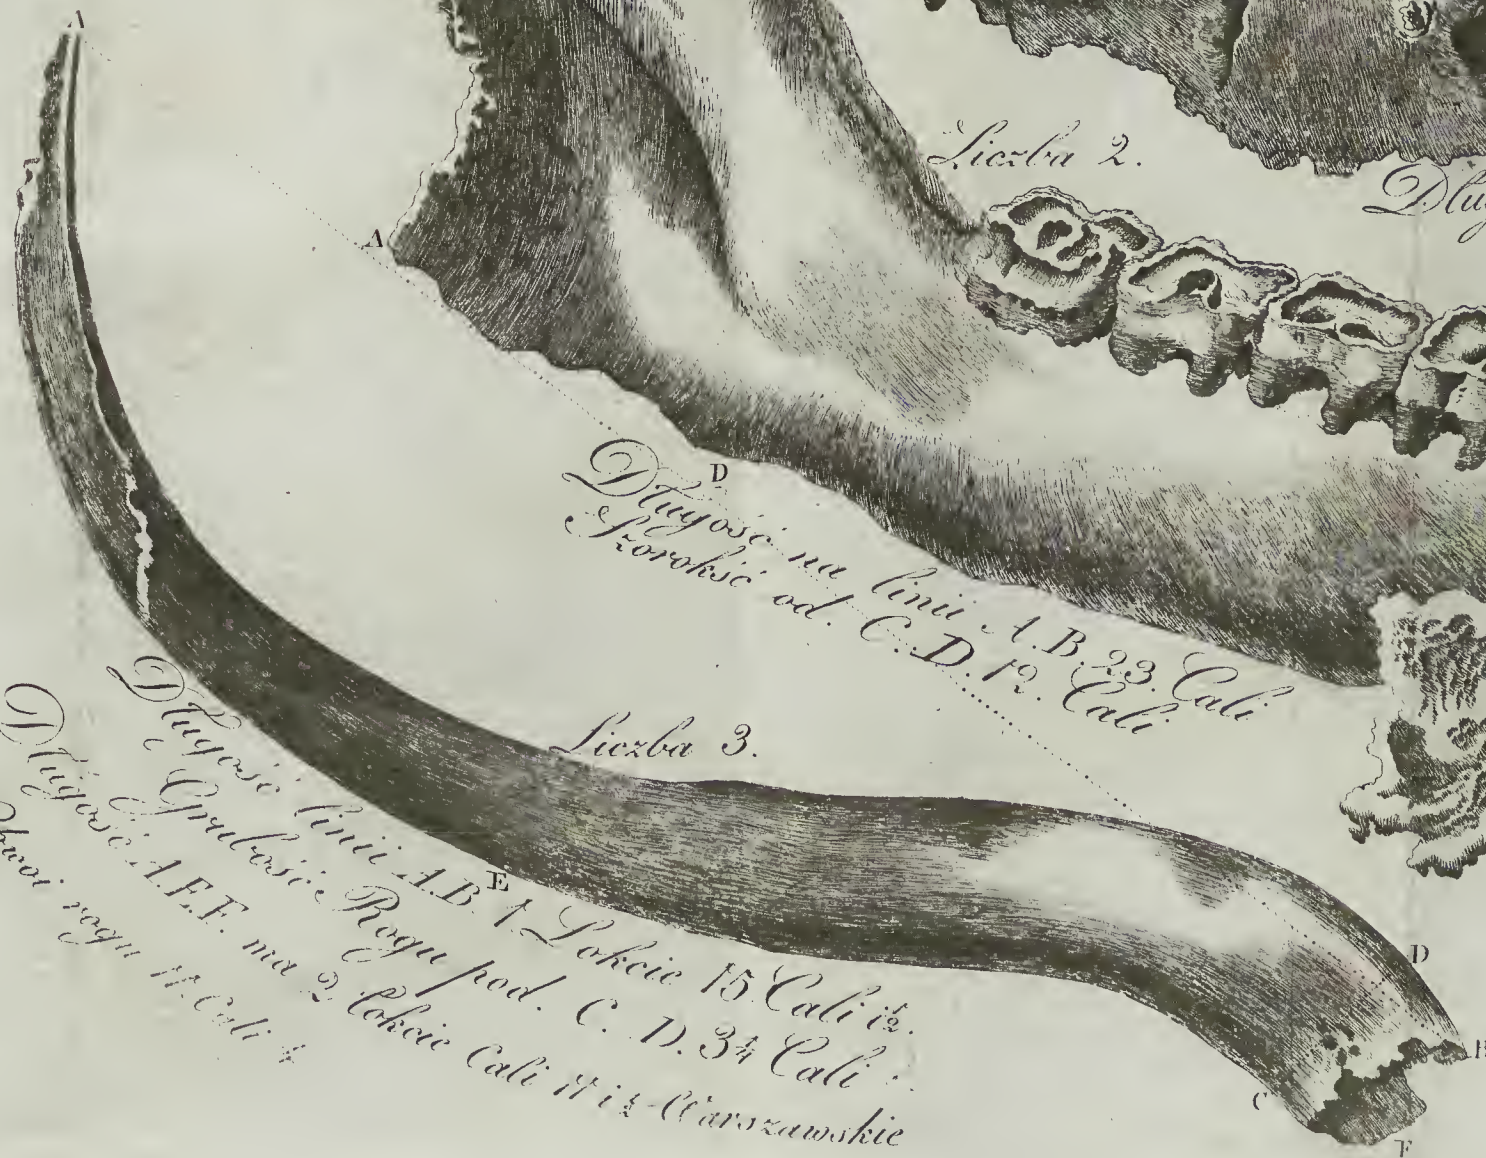 A
Liczba 2.
A
D
Długość na linii A.B. 23. Cali
Szorokść od. C. D. 12. Cali
Liczba 3.
Długość linii A.B. 1 Lokcie 15 Cali i ½.
E
Grubość Rogu pod. C. D. 3¼ Cali
Długość A.E.F. ma 2 Lokcie Cali
Warszawskie
rogu
Cali
D
C
F